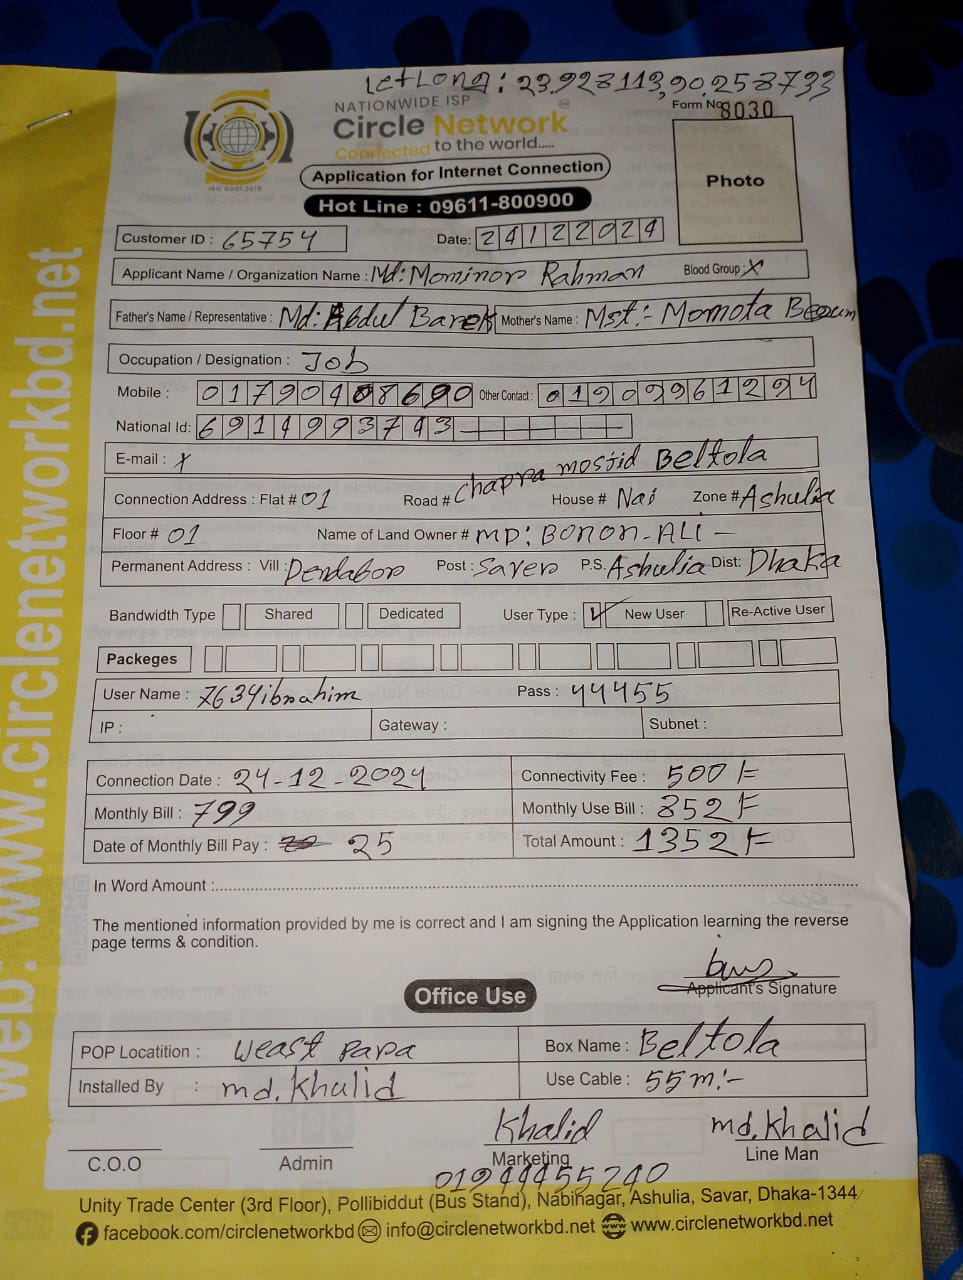 LetLong: 23.928113,90.258733
NATIONWIDE ISP
Circle Network
Connected to the world.....
ISO 9001:2015
Form No 8030
Application for Internet Connection
Hot Line : 09611-800900
Photo
Customer ID : 65754 Date: 24122024
Applicant Name / Organization Name : Md: Mominor Rahman Blood Group : X
Father's Name / Representative : Md: Abdul Barek Mother's Name : Mst:- Momota Begum
Occupation / Designation : Job
Mobile : 01790408690 Other Contact : 01909961294
National Id: 6914993743
E-mail : X
Connection Address : Flat # 01 Road # Chapra mosjid Beltola House # Nai Zone # Ashulia
Floor # 01 Name of Land Owner # MD: BONON-ALI -
Permanent Address : Vill : Dendabor Post : Saver P.S. Ashulia Dist: Dhaka
Bandwidth Type Shared Dedicated User Type : ✓ New User Re-Active User
Packeges
User Name : 7634ibrahim Pass : 44455
IP : Gateway : Subnet :
Connection Date : 24-12-2024 Connectivity Fee : 500/=
Monthly Bill : 799 Monthly Use Bill : 852/=
Date of Monthly Bill Pay : 25 Total Amount : 1352/=
In Word Amount :
The mentioned information provided by me is correct and I am signing the Application learning the reverse
page terms & condition.
Applicant's Signature
Office Use
POP Locatition : Weast Papa Box Name : Beltola
Installed By : md. Khalid Use Cable : 55m:-
Khalid md. Khalid
C.O.O Admin Marketing Line Man
01944455240
Unity Trade Center (3rd Floor), Pollibiddut (Bus Stand), Nabinagar, Ashulia, Savar, Dhaka-1344
facebook.com/circlenetworkbd info@circlenetworkbd.net www.circlenetworkbd.net
web : www.circlenetworkbd.net